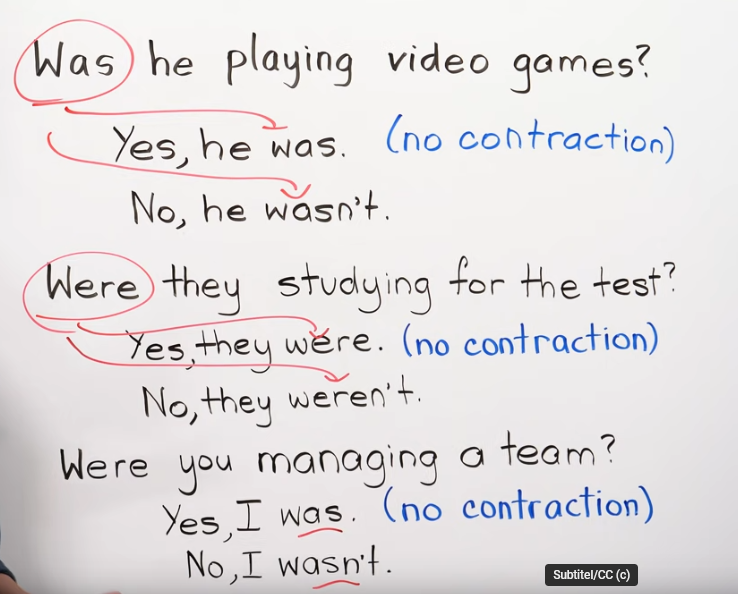 Was he playing video games?
Yes, he was. (no contraction)
No, he wasn't.
Were they studying for the test?
Yes, they were. (no contraction)
No, they weren't.
Were you managing a team?
Yes, I was. (no contraction)
No, I wasn't.
Subtitel/CC (c)